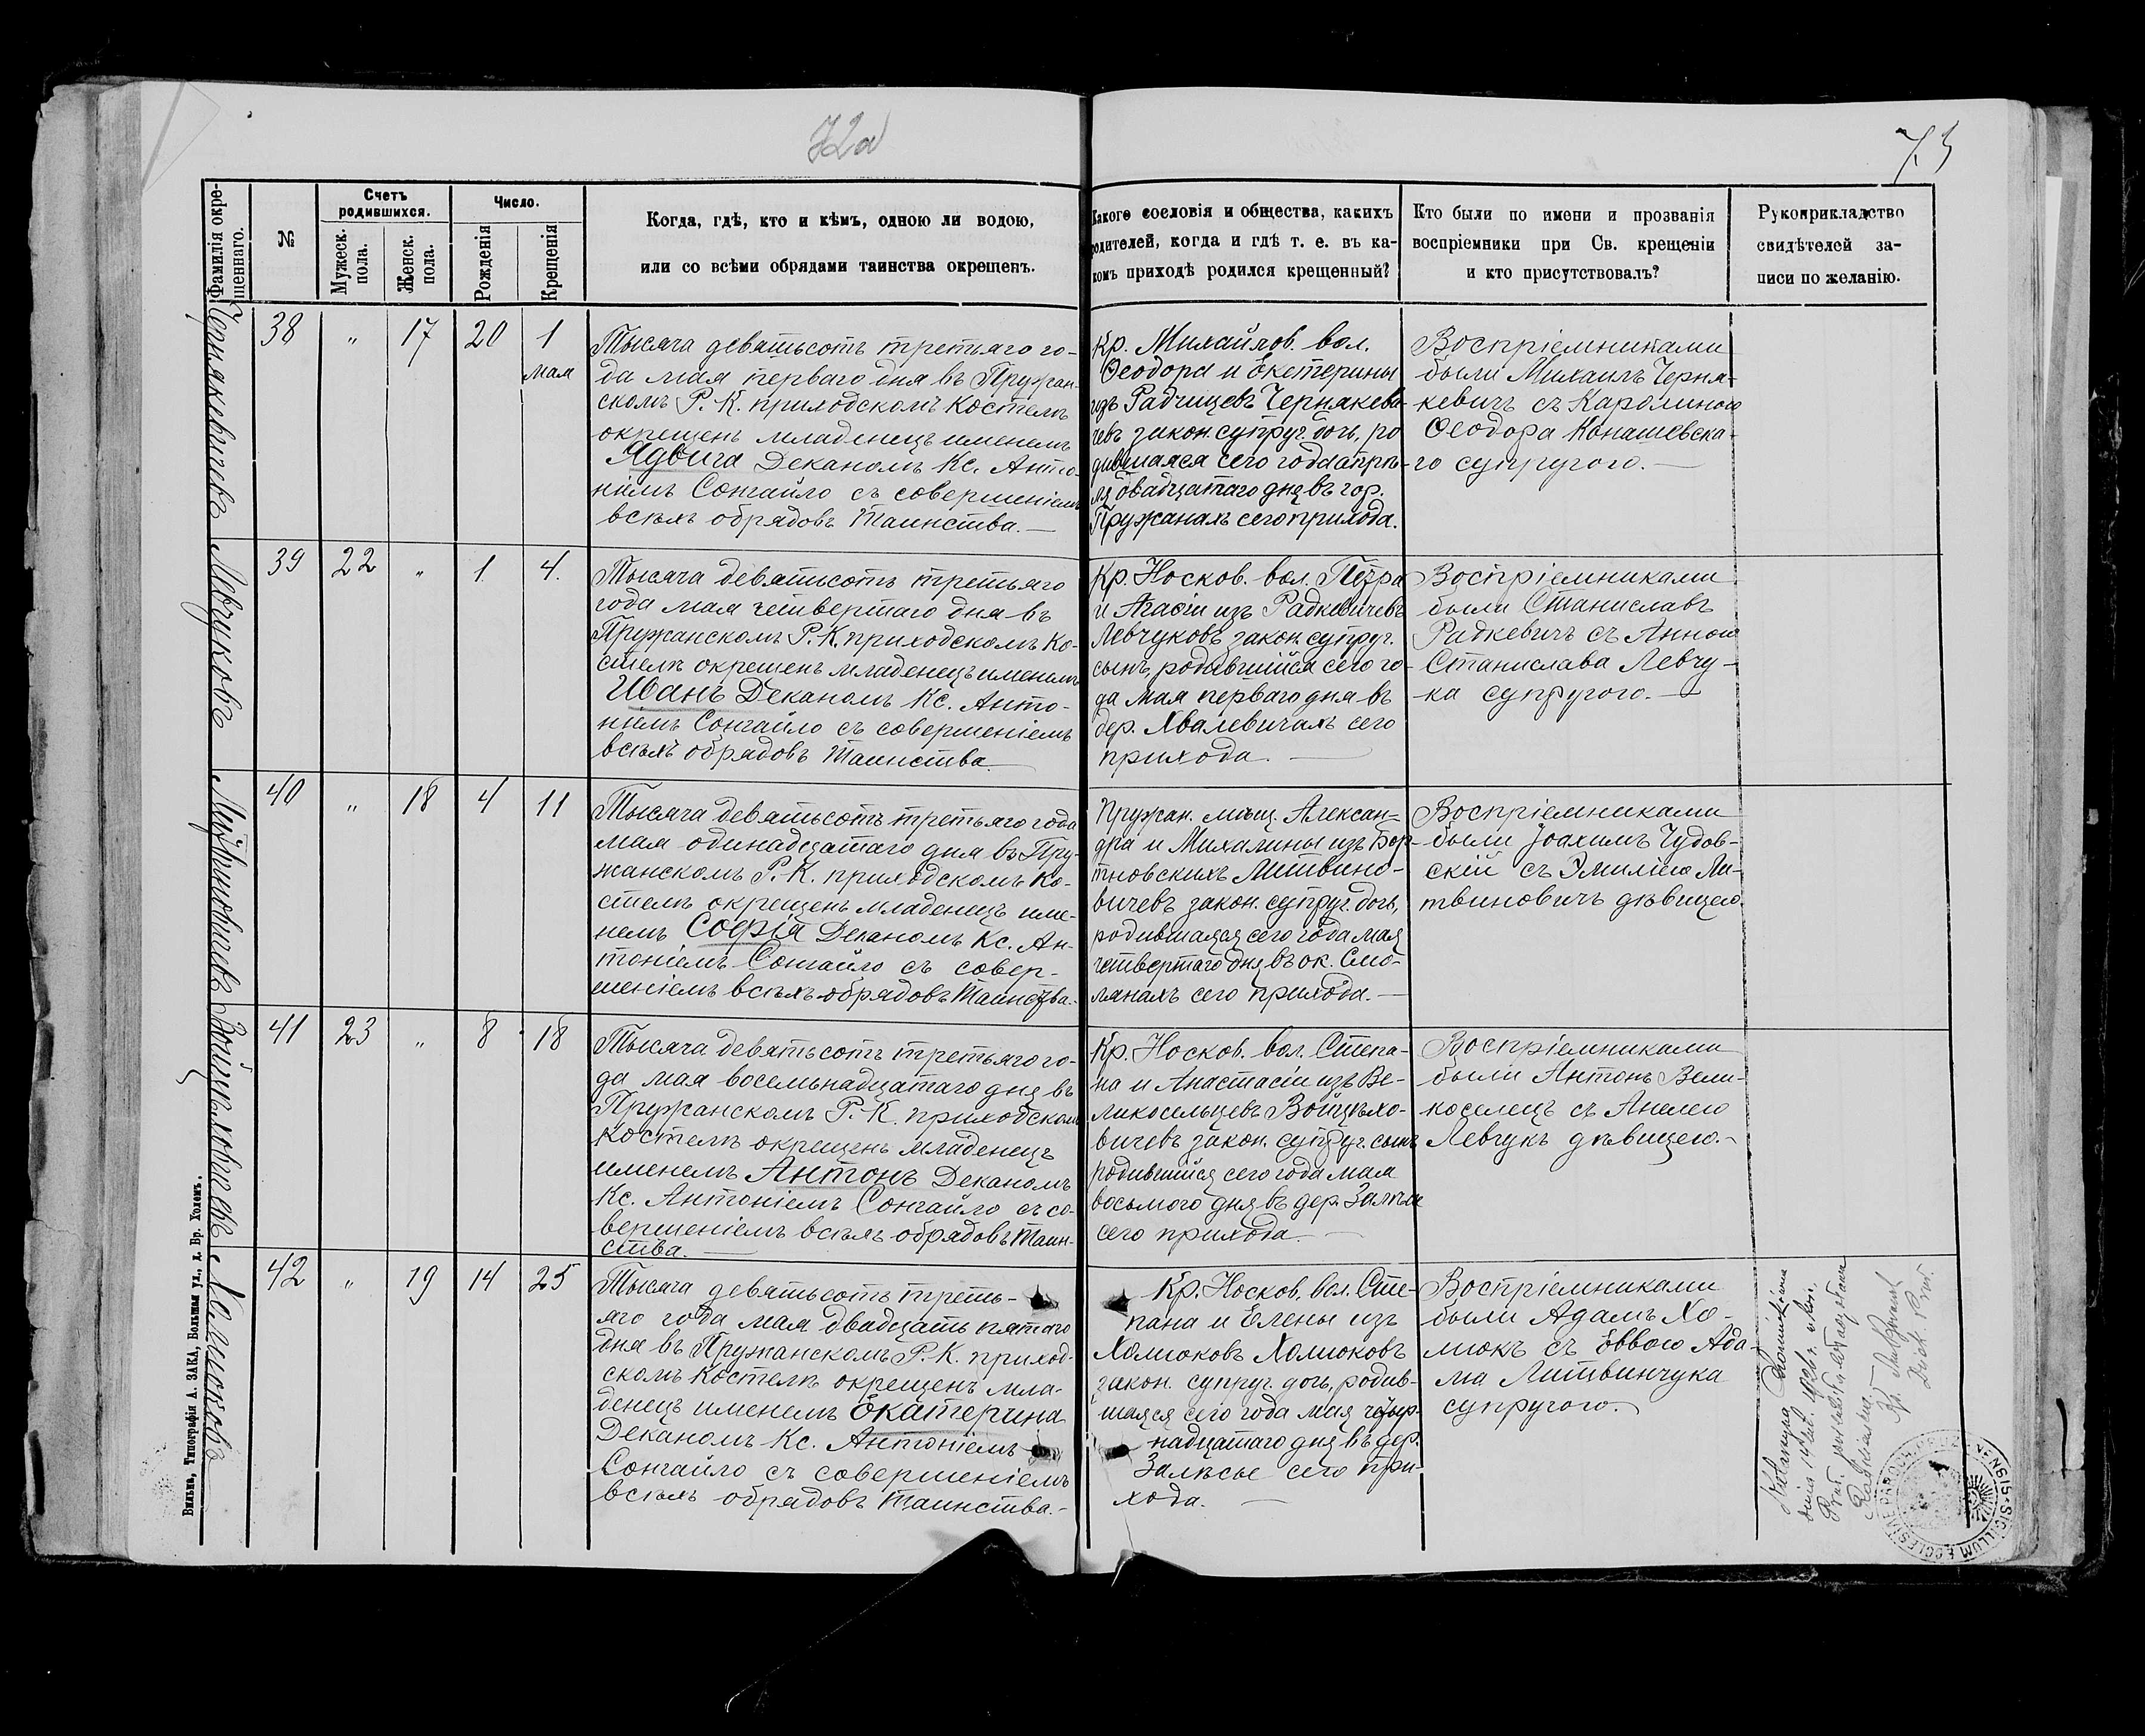 72a
73
Фамилія окре-
щеннаго.
№
Счетъ
родившихся.
Мужеск.
пола.
Женск.
пола.
Число.
Рожденія
Крещенія
Когда, гдѣ, кто и кѣмъ, одною ли водою,
или со всѣми обрядами таинства окрещенъ.
Какого сословія и общества, какихъ
родителей, когда и гдѣ т. е. въ ка-
комъ приходѣ родился крещенный?
Кто были по имени и прозванія
воспріемники при Св. крещеніи
и кто присутствовалъ?
Рукоприкладство
свидѣтелей за-
писи по желанію.
Чернякевичевъ
38
"
17
20
1
мая
Тысяча девятьсотъ третьяго го-
да мая перваго дня въ Пружан-
скомъ Р. К. приходскомъ Костелѣ
окрещенъ младенецъ именемъ
Ядвига Деканомъ Кс. Анто-
ніемъ Сонгайло съ совершеніемъ
всѣхъ обрядовъ Таинства.—
Кр. Михайлов. вол.
Ѳеодора и Екатерины
изъ Радчицевъ Чернякеви-
чевъ закон. супруг. дочь, ро
дившаяся сего года апрѣ-
ля двадцатаго дня въ гор.
Пружанахъ сего прихода.
Воспріемниками
были Михаилъ Черня-
кевичъ съ Каролиною
Ѳеодора Конашевска-
го супругою.—
Левчуковъ
39
22
"
1
4.
Тысяча девятьсотъ третьяго
года мая четвертаго дня въ
Пружанскомъ Р. К. приходскомъ Ко-
стелѣ окрещенъ младенецъ именемъ
Иванъ Деканомъ Кс. Анто-
ніемъ Сонгайло съ совершеніемъ
всѣхъ обрядовъ Таинства.
Кр. Носков. вол. Петра
и Агафіи изъ Радкевичевъ
Левчуковъ закон. супруг.
сынъ, родившійся сего го-
да мая перваго дня въ
дер. Хвалевичахъ сего
прихода.—
Воспріемниками
были Станиславъ
Радкевичъ съ Анною
Станислава Левчу-
-ка супругою.—
Литвиновичевъ
40
"
18
4
11
Тысяча девятьсотъ третьяго года
мая одинадцатаго дня въ Пру-
жанскомъ Р. К. приходскомъ Ко-
стелѣ окрещенъ младенецъ име-
немъ Софія Деканомъ Кс. Ан-
тоніемъ Сонгайло съ совер-
шеніемъ всѣхъ обрядовъ Таинства.
Пружан. мѣщ. Алексан-
дра и Михалины изъ Бор-
тновскихъ Литвино-
вичевъ закон. супруг. дочь,
родившаяся сего года мая
четвертаго дня въ ок. Смо-
лянахъ сего прихода.—
Воспріемниками
были Іоахимъ Чудов-
скій съ Эмиліею Ли-
твиновичъ дѣвицею.
Войцѣховичевъ
41
23
"
8
18
Тысяча девятьсотъ третьяго го-
да мая восемьнадцатаго дня въ
Пружанскомъ Р. К. приходскомъ
Костелѣ окрещенъ младенецъ
именемъ Антонъ Деканомъ
Кс. Антоніемъ Сонгайло съ со-
вершеніемъ всѣхъ обрядовъ Таин-
ства.—
Кр. Носков. вол. Степа-
на и Анастасіи изъ Ве-
ликосельцевъ Войцѣхо-
вичевъ закон. супруг. сынъ
родившійся сего года мая
восьмого дня въ дер. Залѣсье
сего прихода.—
Воспріемниками
были Антонъ Вели-
коселецъ съ Анелею
Левчукъ дѣвицею.
Хомюковъ
42
"
19
14
25
Тысяча девятьсотъ треть-
яго года мая двадцать пятаго
дня въ Пружанскомъ Р. К. приход-
скомъ Костелѣ окрещенъ мла-
денецъ именемъ Екатерина
Деканомъ Кс. Антоніемъ
Сонгайло съ совершеніемъ
всѣхъ обрядовъ Таинства.-
Кр. Носков. вол. Сте-
пана и Елены изъ
Хомюковъ Хомюковъ
закон. супруг. дочь, родив-
шаяся сего года мая четыр-
надцатаго дня въ дер.
Залѣсье сего при-
хода.—
Воспріемниками
были Адамъ Хо-
мюкъ съ Еввою Ада-
ма Литвинчука
супругою.
Вильна, Типографія А. ЗАКА, Большая ул., д. Бр. Холемъ.
SIGILLUM ECCLESIAE PAROCH